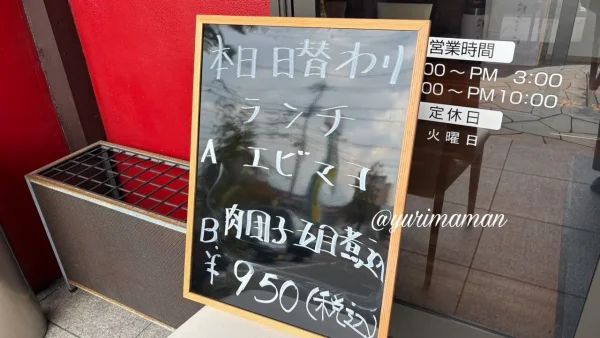 本日日替わり
ランチ
A エビマヨ
B 肉団子五目煮込
¥950(税込)
営業時間
00～PM 3:00
00～PM10:00
定休日
火曜日
@yurimaman